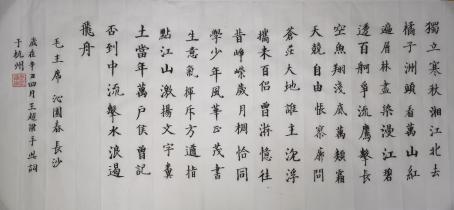 獨立寒秋湘江北去
橘子洲頭看萬山紅
遍層林盡染漫江碧
透百舸爭流鷹擊長
空魚翔淺底萬類霜
天競自由悵寥廓問
蒼茫大地誰主沈浮
攜來百侶曾游憶往
昔崢嶸歲月稠恰同
學少年風華正茂書
生意氣揮斥方遒指
點江山激揚文字糞
土當年萬戶侯曾記
否到中流擊水浪遏
飛舟
毛主席 沁園春 長沙
歲在辛丑四月王超
于杭州